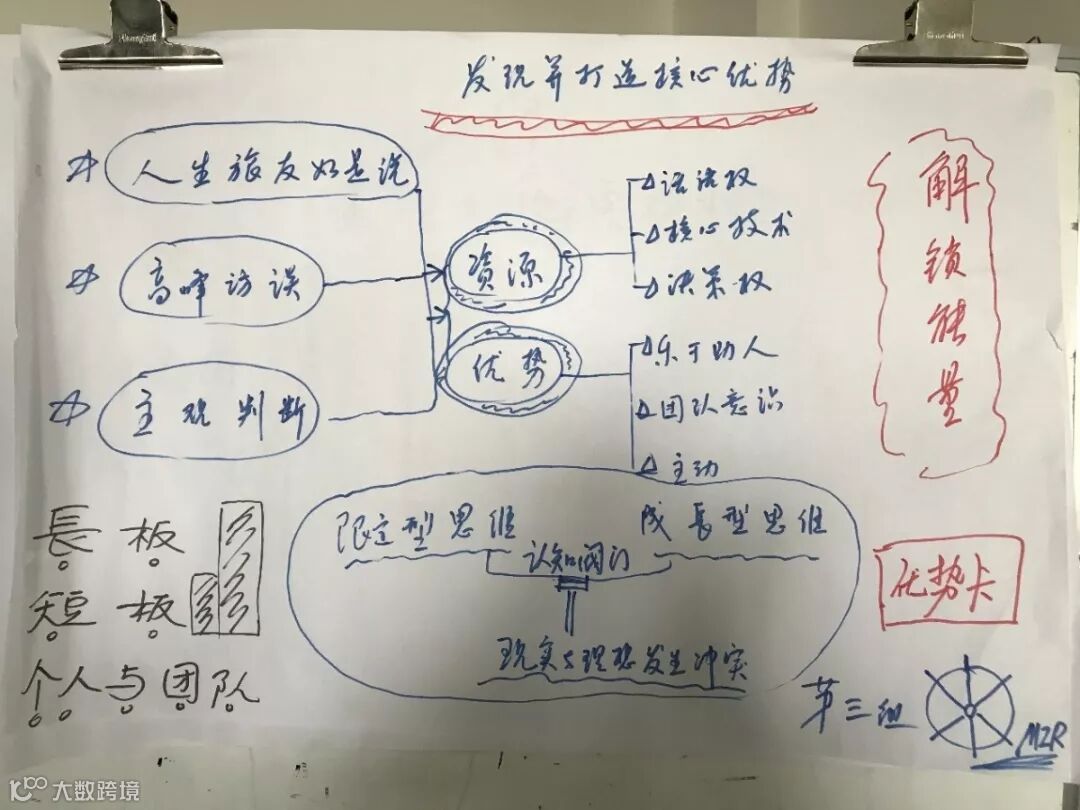 发现并打造核心优势
人生旅友如是说
高峰访谈
主观判断
资源
优势
话语权
核心技术
决策权
乐于助人
团队意识
主动
解锁能量
限定型思维
成長型思维
认知阀门
现实与理想发生冲突
長板
短板
个人与团队
优势卡
第三组
MZR
大数跨境